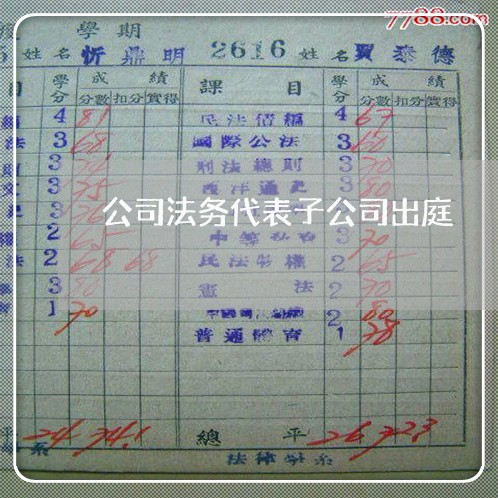 7788.com
學期
5 姓名 忻鼎明 2616 姓名 賈泰德
目 學分 成績 課目 學分 成績
分數 扣分 實得 分數 扣分 實得
4 81 民法債編 4 67
法 3 68 國際公法 3 60
3 刑法總則 3 70
3 75 西洋通史 3 80
3
公司法务代表子公司出庭
2 65 3 70
法 2 68 68 民法物權 2 65
3 80 憲法 2 70
1 70 2 80
普通體育 1 78
平 24 74.1 總平 26 72.3
系 法律學系